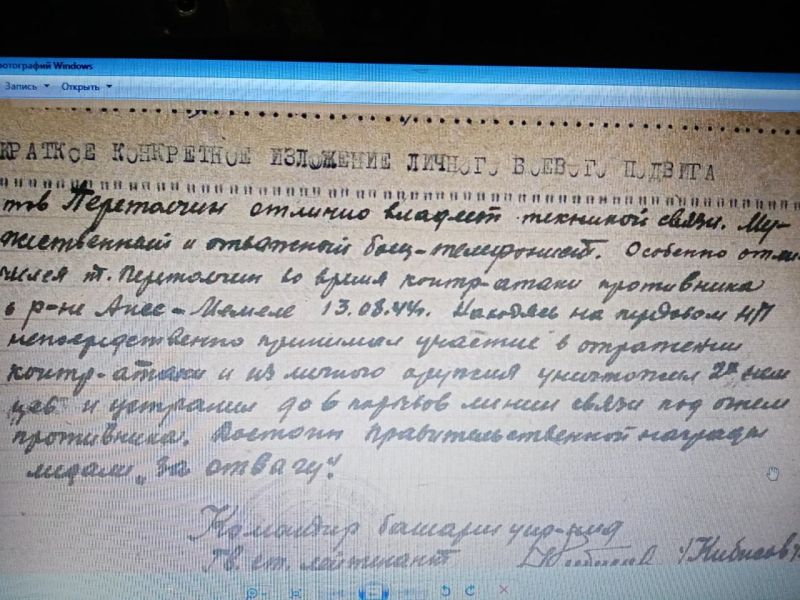 отографий Windows
Запись Открыть
КРАТКОЕ КОНКРЕТНОЕ ИЗЛОЖЕНИЕ ЛИЧНОГО БОЕВОГО ПОДВИГА
тов Перетолчин отлично владеет техникой связи. Му-
жественный и отважный боец-телефонист. Особенно отли-
чился т. Перетолчин во время контр-атаки противника
в р-не Анес-Мемеле 13.08.44г. Находясь на передовом НП
непосредственно принимал участие в отражении
контр-атаки и из личного оружия уничтожил 2х нем
цев и устранил до 6 порывов линии связи под огнем
противника. Достоин правительственной награды
медали "За отвагу".
Командир батареи
Гв. ст. лейтенант /Кибисов/